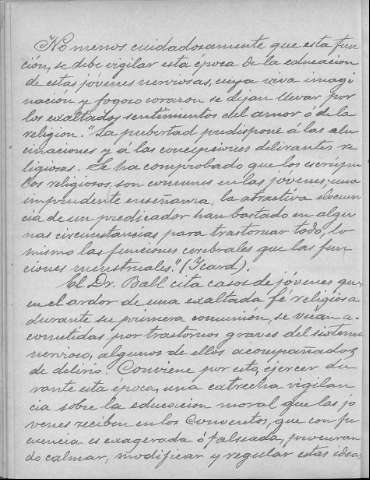 No menos cuidadosamente que esta fun-
ción, se debe vigilar esta época de la educacion
de estas jóvenes nerviosas, cuya viva imagi-
nación y fogoso corazon se dejan llevar por
los exaltados sentimientos del amor ó de la
religion. "La pubertad predispone á las alu-
cinaciones y á las concepciones delirantes re-
ligiosas. Se ha comprobado que los escrúpu-
los religiosos, son comunes en las jóvenes; una
imprudente enseñanza, la atractiva elocuen-
cia de un predicador han bastado en algu-
nas circunstancias para trastornar todo, lo
mismo las funciones cerebrales que las fun-
ciones menstruales." (Icard).
El Dr. Ball cita casos de jóvenes que,
en el ardor de una exaltada fé religiosa
durante su primera comunión, se veían a-
cometidas por trastornos graves del sistema
nervioso, algunos de ellos acompañados
de delirio. Conviene por esto, ejercer du-
rante esta época, una extrecha vigilan-
cia sobre la educacion moral que las jó-
venes reciben en los Conventos, que con fre-
cuencia es exagerada ó falseada, procuran-
do calmar, modificar y regular estas ideas